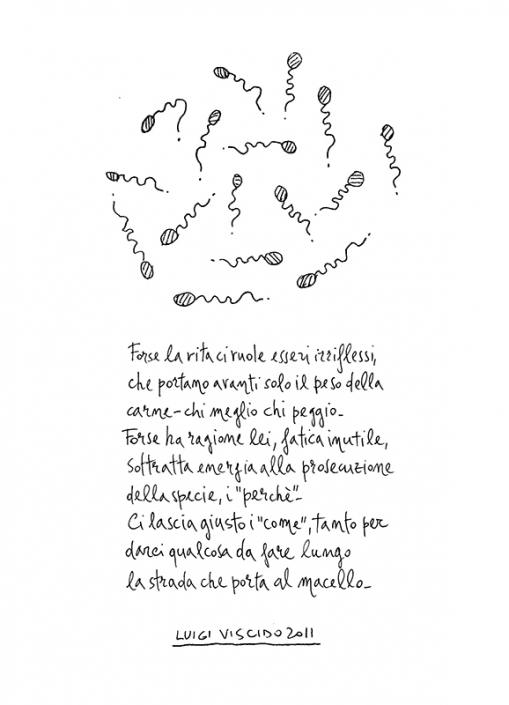 Forse la vita ci vuole esseri irriflessi,
che portano avanti solo il peso della
carne - chi meglio chi peggio.
Forse ha ragione lei, fatica inutile,
sottratta energia alla prosecuzione
della specie, i "perchè".
Ci lascia giusto i "come", tanto per
darci qualcosa da fare lungo
la strada che porta al macello.
LUIGI VISCIDO 2011